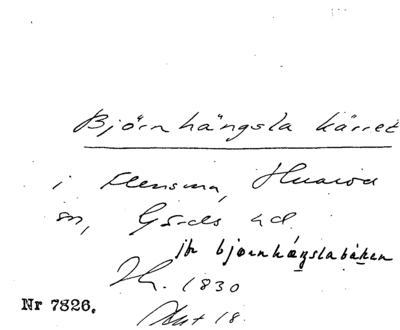 Björnhängsla kärret
i Flensma, Huaröd
sn, Gärds hd.
jfr bjornhägslabaken
Lk. 1830
Akt 18.
Nr 7826.